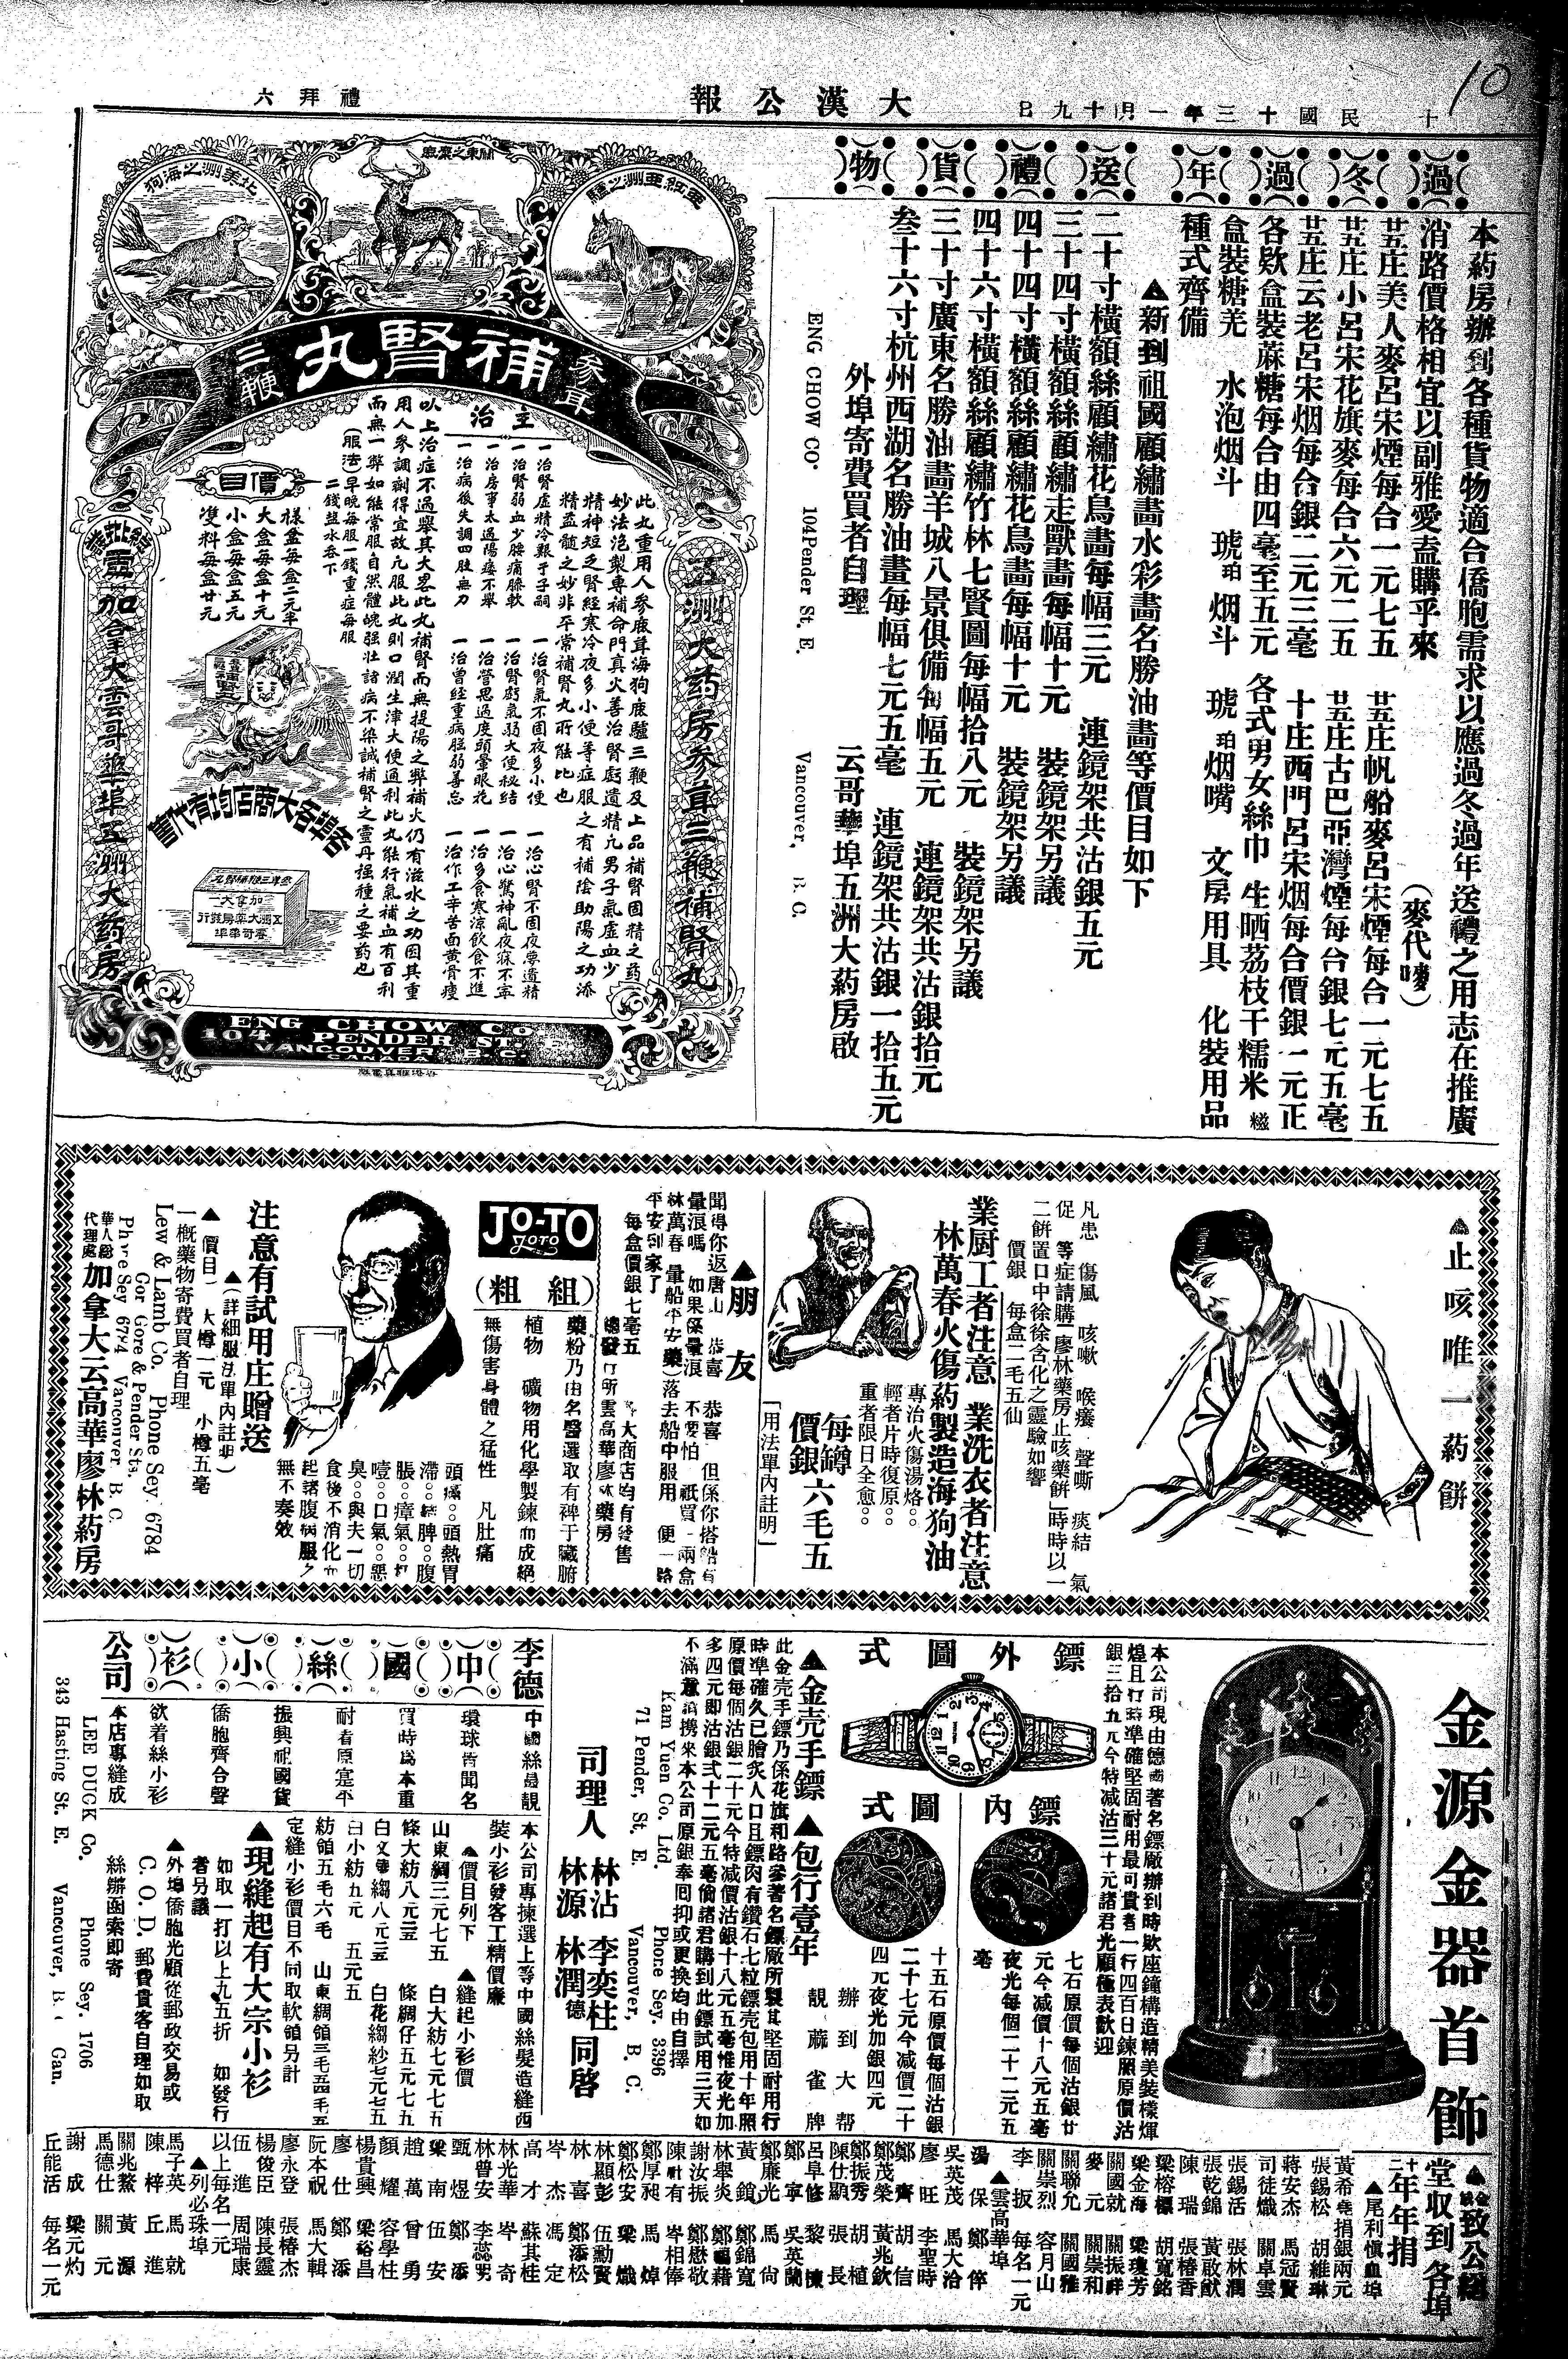 十
民國十三年一月十九日
大漢公報
禮拜六
10
過冬過年送禮貨物
本葯房辦到各種貨物適合僑胞需求以應過冬過年送禮之用志在推廣
消路價格相宜以副雅愛盍購乎來
(麥代嘜)
廿五庄美人麥呂宋煙每合一元七五
廿五庄帆船麥呂宋煙每合一元七五
廿五庄小呂宋花旗麥每合六元二五
廿五庄古巴亞灣煙每合銀七元五毫
廿五庄云老呂宋烟每合銀二元三毫
十庄西門呂宋烟每合價銀一元正
各欵盒裝蔴糖每合由四毫至五元
各式男女絲巾 生晒荔枝干糯米糍
盒裝糖羌 水泡烟斗 琥珀烟斗 琥珀烟嘴 文房用具 化裝用品
種式齊備
▲新到祖國顧繡畫水彩畫名勝油畫等價目如下
二十寸橫額絲顧繡花鳥畫每幅三元 連鏡架共沽銀五元
三十四寸橫額絲顧繡走獸畫每幅十元 裝鏡架另議
四十四寸橫額絲顧繡花鳥畫每幅十元 裝鏡架另議
四十六寸橫額絲顧繡竹林七賢圖每幅拾八元 裝鏡架另議
三十寸廣東名勝油畫羊城八景俱備每幅五元 連鏡架共沽銀拾元
叁十六寸杭州西湖名勝油畫每幅七元五毫 連鏡架共沽銀一拾五元
外埠寄費買者自理 云哥華埠五洲大葯房啟
ENG CHOW CO. 104 Pender St. E. Vancouver, B. C.
亞細亞洲之驢
關東之麋鹿
北美洲之海狗
參茸
補腎丸
三鞭
五洲大葯房參茸三鞭補腎丸
此丸重用人參鹿茸海狗鹿驢三鞭及上品補腎固精之葯
妙法泡製專補命門真火善治腎虧遺精凡男子氣虛血少
精神短乏腎經寒冷夜多小便等症服之有補陰助陽之功添
精益髓之妙非平常補腎丸所能比也
主治
一治腎虛精冷艱于子嗣
一治腎氣不固夜多小便
一治心腎不固夜夢遺精
一治腎弱血少腰痛膝軟
一治腎虧氣弱大便秘結
一治心驚神亂夜寐不寧
一治房事太過陽痿不舉
一治營思過度頭暈眼花
一治多食寒涼飲食不進
一治病後失調四肢無力
一治曾經重病胆弱善忘
一治作工辛苦面黃骨瘦
以上治症不過舉其大畧此丸補腎而無提陽之弊補火仍有滋水之功因其重
用人參調劑得宜故凡服此丸則口潤生津大便通利此丸能行氣補血有百利
而無一弊如能常服自然體魄强壯諸病不染誠補腎之靈丹種種之要葯也
(服法)早晚每服一錢重症每服
二錢鹽水吞下
價目
樣盒每盒二元半
大盒每盒十元
小盒每盒五元
雙料每盒廿元
各埠各大商店均有代售
總批發處加拿大雲哥華埠五洲大葯房
ENG CHOW Co.
104 PENDER ST. E.
VANCOUVER, B. C.
CANADA
▲止咳唯一葯餅
凡患 傷風 咳嗽 喉癢 聲嘶 痰結 氣
促 等症請購「廖林藥房止咳藥餅」時時以一
二餅置口中徐徐含化之靈驗如響
價銀 每盒二毛五仙
業厨工者注意 業洗衣者注意
林萬春火傷葯製造海狗油
專治火傷湯烙
輕者片時復原
重者限日全愈
每罇
價銀六毛五
「用法單內註明」
▲朋友
聞得你返唐山 恭喜 恭喜 但係你搭船有
暈浪嗎 如果係暈浪 不要怕 祇買一兩盒
林萬春 暈船平安藥 落去船中服用 便一路
平安到家了
每盒價銀七毫五 各大商店均有發售
總發行所雲高華廖林藥房
JO-TO
JOTO
(粗組)
藥粉乃由名醫選取有裨于臟腑
植物 礦物用化學製鍊而成絕
無傷害身體之猛性 凡肚痛
頭痛 頭熱胃
滯 脾 腹
脹 瘴氣 打
噎 口氣 惡
臭 與夫一切
食後不消化而
起諸腹病服之
無不奏效
注意有試用庄贈送
▲(詳細服法單內註明)
▲價目 大罇一元 小罇五毫
一概藥物寄費買者自理
Lew & Lamb Co. Phone Sey. 6784
Cor Gore & Pender Sts.
Phone Sey 6784 Vancouver B. C.
華人總代理處 加拿大云高華廖林葯房
金源金器首飾
本公司現由德國著名鏢廠辦到時欵座鐘構造精美裝樣煇
煌且行時準確堅固耐用最可貴者一行四百日鍊願原價沽
銀三拾九元今特減沽三十元諸君光顧極表歡迎
鏢外圖式
鏢內圖式
七石原價每個沽銀廿
元今減價十八元五毫
夜光每個二十二元五
毫
十五石原價每個沽銀
二十七元今減價二十
四元夜光加銀四元
辦到大帮
靚蔴雀牌
▲金壳手鏢 ▲包行壹年
此金壳手鏢乃係花旗和路參著名鏢廠所製其堅固耐用行
時準確久已膾炙人口且鏢肉有鑽石七粒鏢壳包用十年照
原價每個沽銀二十元今特減價沽銀十八元五毫惟夜光加
多四元即沽銀弍十二元五毫倘諸君購到此鏢試用三天如
不滿意請携來本公司原銀奉囘抑或更換均由自擇
Kam Yuen Co. Ltd. Phone Sey. 3396
71 Pender, St. E. Vancouver, B. C.
司理人 林沾 李奕柱 林源 林潤德 同啓
李德 中國絲小衫 公司
中國絲最靚
環球皆聞名
買時爲本重
耐着原寔平
振興祖國貨
僑胞齊合聲
欲着絲小衫
本店專縫成
本公司專揀選上等中國絲髮造縫西
裝小衫發客工精價廉
▲價目列下 ▲縫起小衫價
山東綢三元七五 白大紡七元七五
條大紡八元三 條綢仔五元七五
白文華縐八元三 白花縐紗七元七五
白小紡九元 五元五
紡領五毛六毛 山東綢領三毛四毛五
定縫小衫價目不同取軟領另計
▲現縫起有大宗小衫
如取一打以上九五折 如發行
者另議
▲外埠僑胞光顧從郵政交易或
C. O. D. 郵費貴客自理如取
絲辦函索即寄
LEE DUCK Co. Phone Sey. 1706
343 Hasting St. E. Vancouver, B. C. Can.
致公總
堂收到各埠
十二年年捐
▲尾利慎血埠
黃希堯捐銀兩元
張錫松 胡維琳
蔣安杰 馬冠賢
司徒熾 關卓雲
張錫活 張林潤
張乾錦 黃啟猷
陳瑞 張椿香
梁榕標 胡寬銘
梁金海 梁瓊芳
關國就 關振祥
麥元 關崇和
關聯允 關國雅
關崇烈 容月山
李扳 每名一元
▲雲高華埠
湯保 鄭倖
吳英茂 馬大洽
廖旺 李聖時
鄭齊 胡信
鄭茂榮 黃兆欽
鄭振秀 胡植
陳仕顯 張長
呂阜修 黎棟
鄭寧 吳英蘭
鄭廉光 馬尙
黃鎗 鄭錦寬
林舉炎 鄭國藉
謝汝振 鄭懋敬
陳有 岑相倖
鄭厚昶 馬焯
鄭松安 梁熾
林顯彭 伍勳賢
林喜 鄭添松
岑杰 馮定
高才 蘇其桂
林光華 岑奇
林曾安 李蕊男
甄煜 鄭添
梁南 伍安
趙萬 曾勇
顏耀 容學柱
楊貴興 梁裕昌
廖仕 鄭添
阮本祝 馬大輯
廖永登 張椿杰
楊俊臣 陳長靈
伍進 周瑞康
以上每名一元
▲列必珠埠
馬子英 馬就
陳梓 丘進
關兆鰲 黃源
馬德仕 關元
謝成 梁元灼
丘能活 每名一元